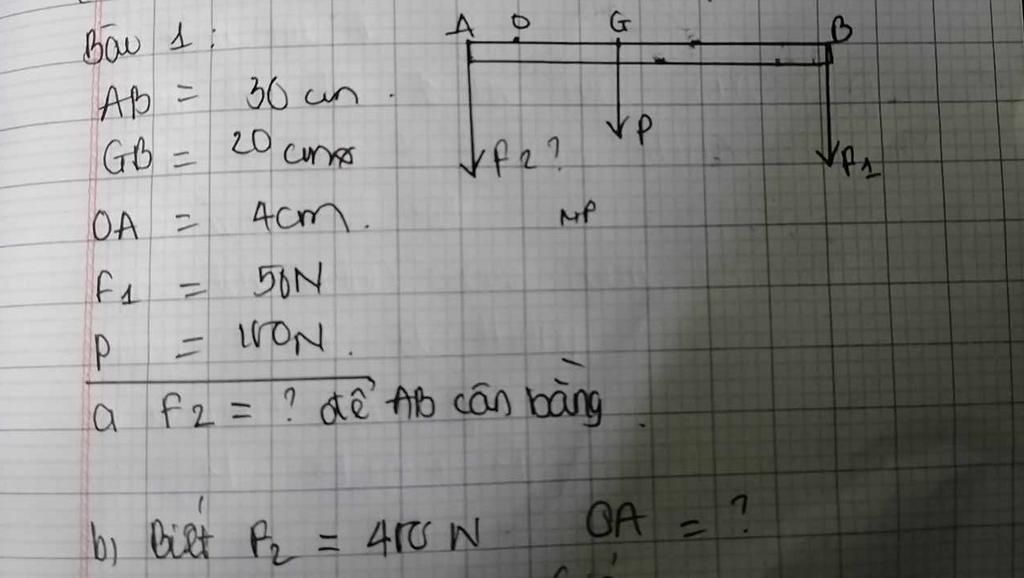 Bài 1:
A O G B
AB = 30 cm.
P
GB = 20 cm
F2?
F1
OA = 4cm.
F1 = 50N
P = 100N.
a F2 = ? để AB cân bằng.
b) Biết F2 = 400 N OA = ?